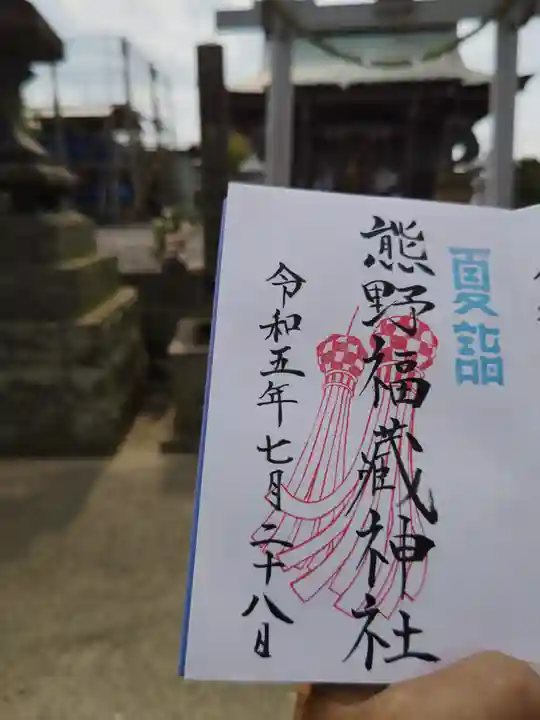 夏詣
熊野福藏神社
令和五年七月二十八日